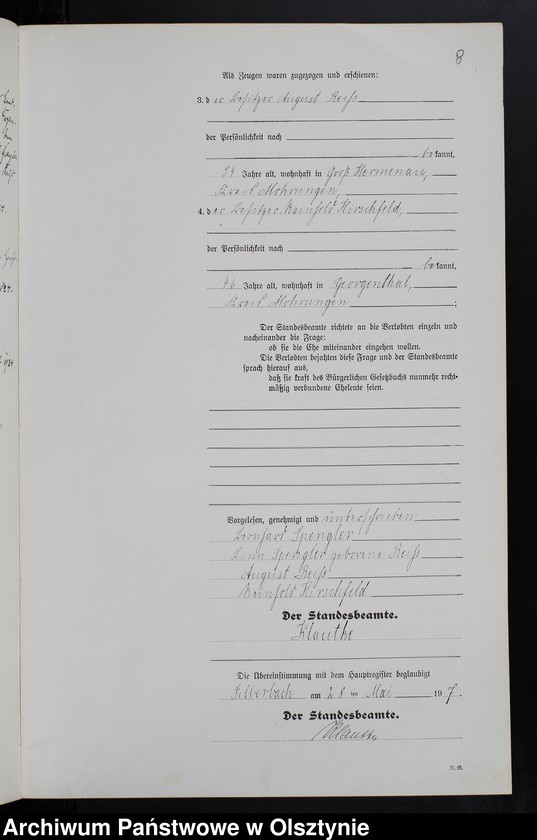 8
Als Zeugen waren zugezogen und erschienen:
3. d er Besitzer August Reiß
der Persönlichkeit nach
be kannt,
54 Jahre alt, wohnhaft in Groß Hermenau,
Kreis Mohrungen,
4. d er Besitzer Reinhold Hirschfeld,
der Persönlichkeit nach
be kannt,
46 Jahre alt, wohnhaft in Georgenthal,
Kreis Mohrungen ;
Der Standesbeamte richtete an die Verlobten einzeln und
nacheinander die Frage:
ob sie die Ehe miteinander eingehen wollen.
Die Verlobten bejahten diese Frage und der Standesbeamte
sprach hierauf aus,
daß sie kraft des Bürgerlichen Gesetzbuchs nunmehr recht-
mäßig verbundene Eheleute seien.
Vorgelesen, genehmigt und unterschrieben
Bernhard Spengler
Lina Spengler geborene Reiß
August Reiß
Reinhold Hirschfeld
Der Standesbeamte.
Klautke
Die Übereinstimmung mit dem Hauptregister beglaubigt
am 28 ten Mai 19 7.
Der Standesbeamte.
Klautke
Archiwum Państwowe w Olsztynie